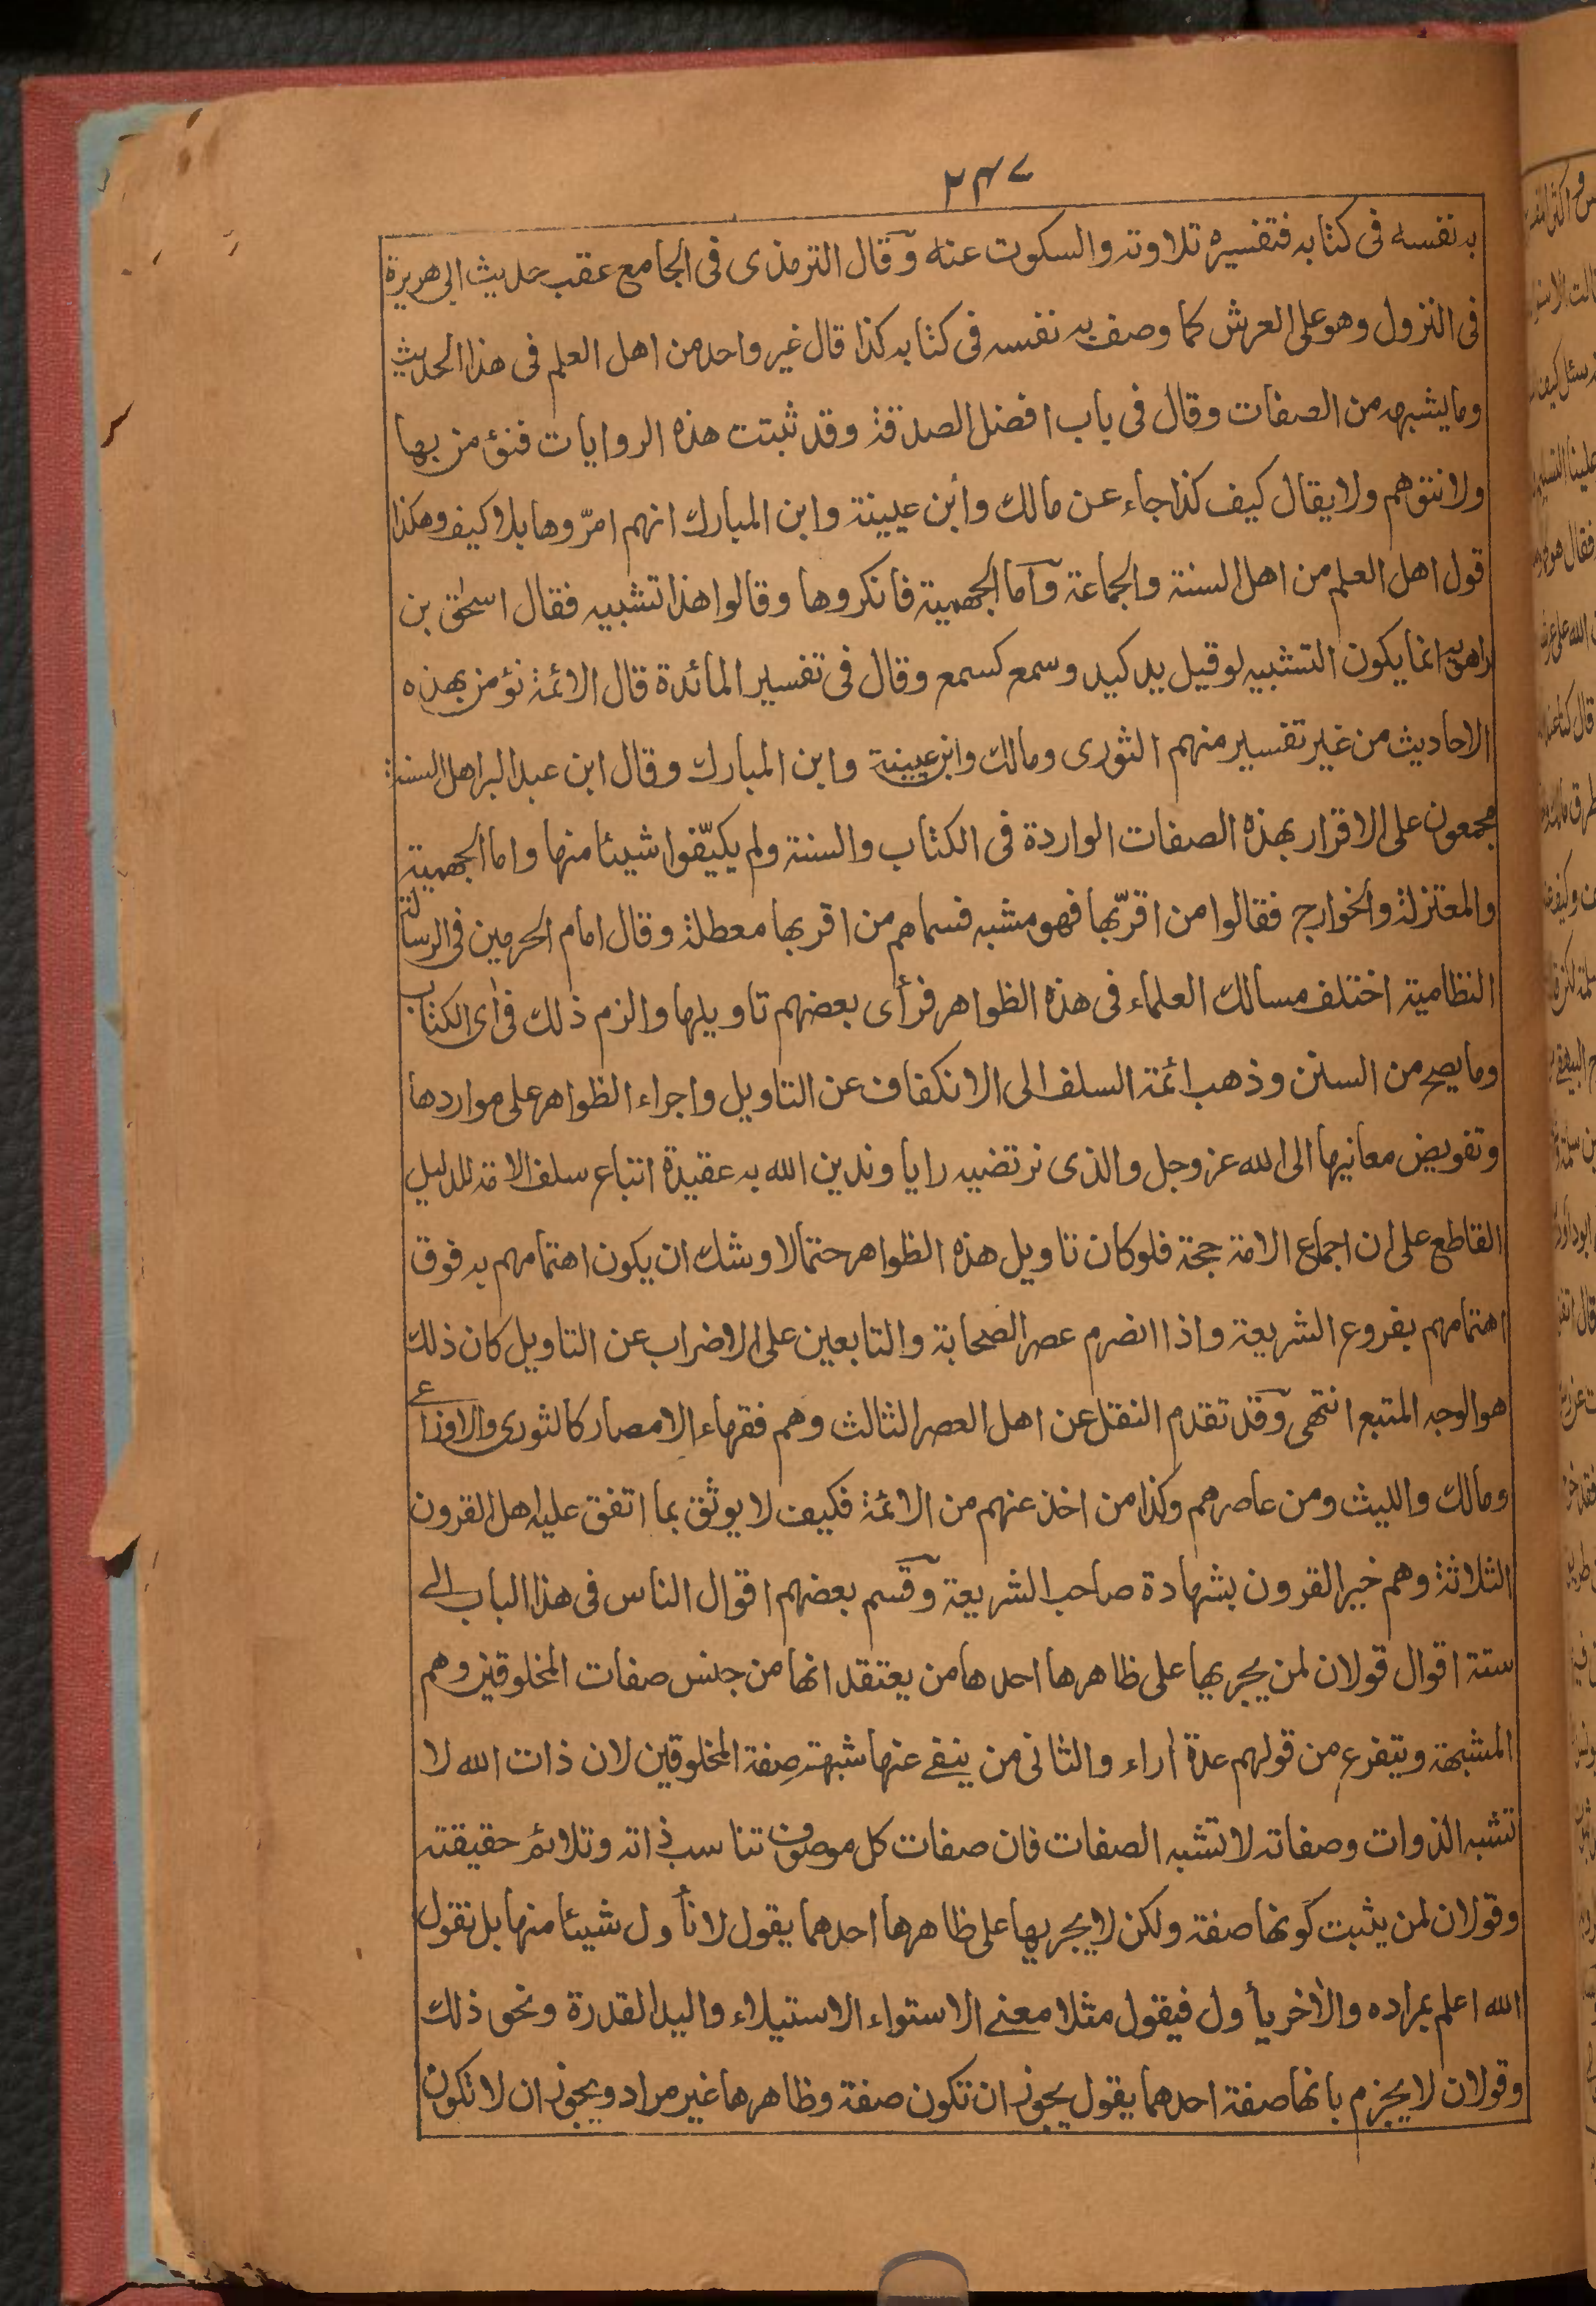 ۲۴۷
به نفسه فى كتابه فتفسيره تلاوته والسكوت عنه وقال الترمذى فى الجامع عقب حديث ابى هريرة
فى النزول وهو على العرش كما وصف به نفسه فى كتابه كذا قال غير واحد من اهل العلم فى هذا الحديث
وما يشبهه من الصفات وقال فى باب افضل الصدقة وقد ثبتت هذه الروايات فنؤمن بها
ولا نتوهم ولا يقال كيف كذا جاء عن مالك وأبن عيينة وابن المبارك انهم امرّوها بلا كيف وهكذا
قول اهل العلم من اهل السنة والجماعة وآما الجهمية فانكروها وقالوا هذا تشبيه فقال اسحٰق بن
راهويه انما يكون التشبيه لو قيل يد كيد وسمع كسمع وقال فى تفسير المائدة قال الائمة نؤمن بهذه
الاحاديث من غير تفسير منهم الثورى ومالك وابن عيينة وابن المبارك وقال ابن عبد البر اهل السنة
مجمعون على الاقرار بهذه الصفات الواردة فى الكتاب والسنة ولم يكيّفوا شيئا منها واما الجهمية
والمعتزلة والخوارج فقالوا من اقرّ بها فهو مشبه فسماهم من اقر بها معطلة وقال امام الحرمين فى الرسالة
النظامية اختلف مسالك العلماء فى هذه الظواهر فرأى بعضهم تاويلها والزم ذلك فى أى الكتاب
وما يصح من السنن وذهب ائمة السلف الى الانكفاف عن التاويل واجراء الظواهر على مواردها
وتفويض معانيها الى الله عز وجل والذى نرتضيه رايا وندين الله به عقيدة اتباع سلف الامة للدليل
القاطع على ان اجماع الامة حجة فلو كان تاويل هذه الظواهر حتما لاوشك ان يكون اهتمامهم به فوق
اهتمامهم بفروع الشريعة واذا انصرم عصر الصحابة والتابعين على الاضراب عن التاويل كان ذلك
هو الوجه المتبع انتهى وقد تقدم النقل عن اهل العصر الثالث وهم فقهاء الامصار كالثورى والاوزاعے
ومالك والليث ومن عاصرهم وكذا من اخذ عنهم من الائمة فكيف لا يوثق بما اتفق عليه اهل القرون
الثلاثة وهم خير القرون بشهادة صاحب الشريعة وقسم بعضهم اقوال الناس فى هذا الباب الے
ستة اقوال قولان لمن يجريها على ظاهرها احدها من يعتقد انها من جنس صفات المخلوقين وهم
المشبهة ويتفرع من قولهم عدة آراء والثانى من ينفے عنها شبهة صفة المخلوقين لان ذات الله لا
تشبه الذوات وصفاته لا تشبه الصفات فان صفات كل موصوف تناسب ذاته وتلائم حقيقته
وقولان لمن يثبت كونها صفة ولكن لا يجريها على ظاهرها احدهما يقول لا نأول شيئا منها بل نقول
الله اعلم بمراده والاخر يأول فيقول مثلا معنے الاستواء الاستيلاء واليد القدرة ونحو ذلك
وقولان لا يجزم بانها صفة احدهما يقول يجوز ان تكون صفة وظاهرها غير مراد ويجوز ان لا تكون